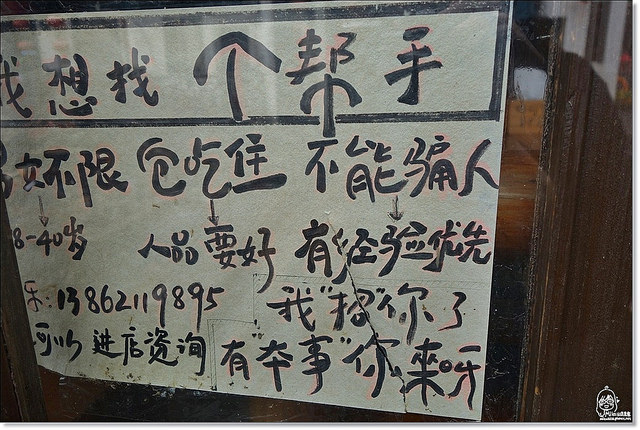 我想找个帮手
女不限 包吃住 不能骗人
8-40岁 人品要好 有经验优先
: 13862119895 我"招"你了
可以进店资询 有"本事"你來呀